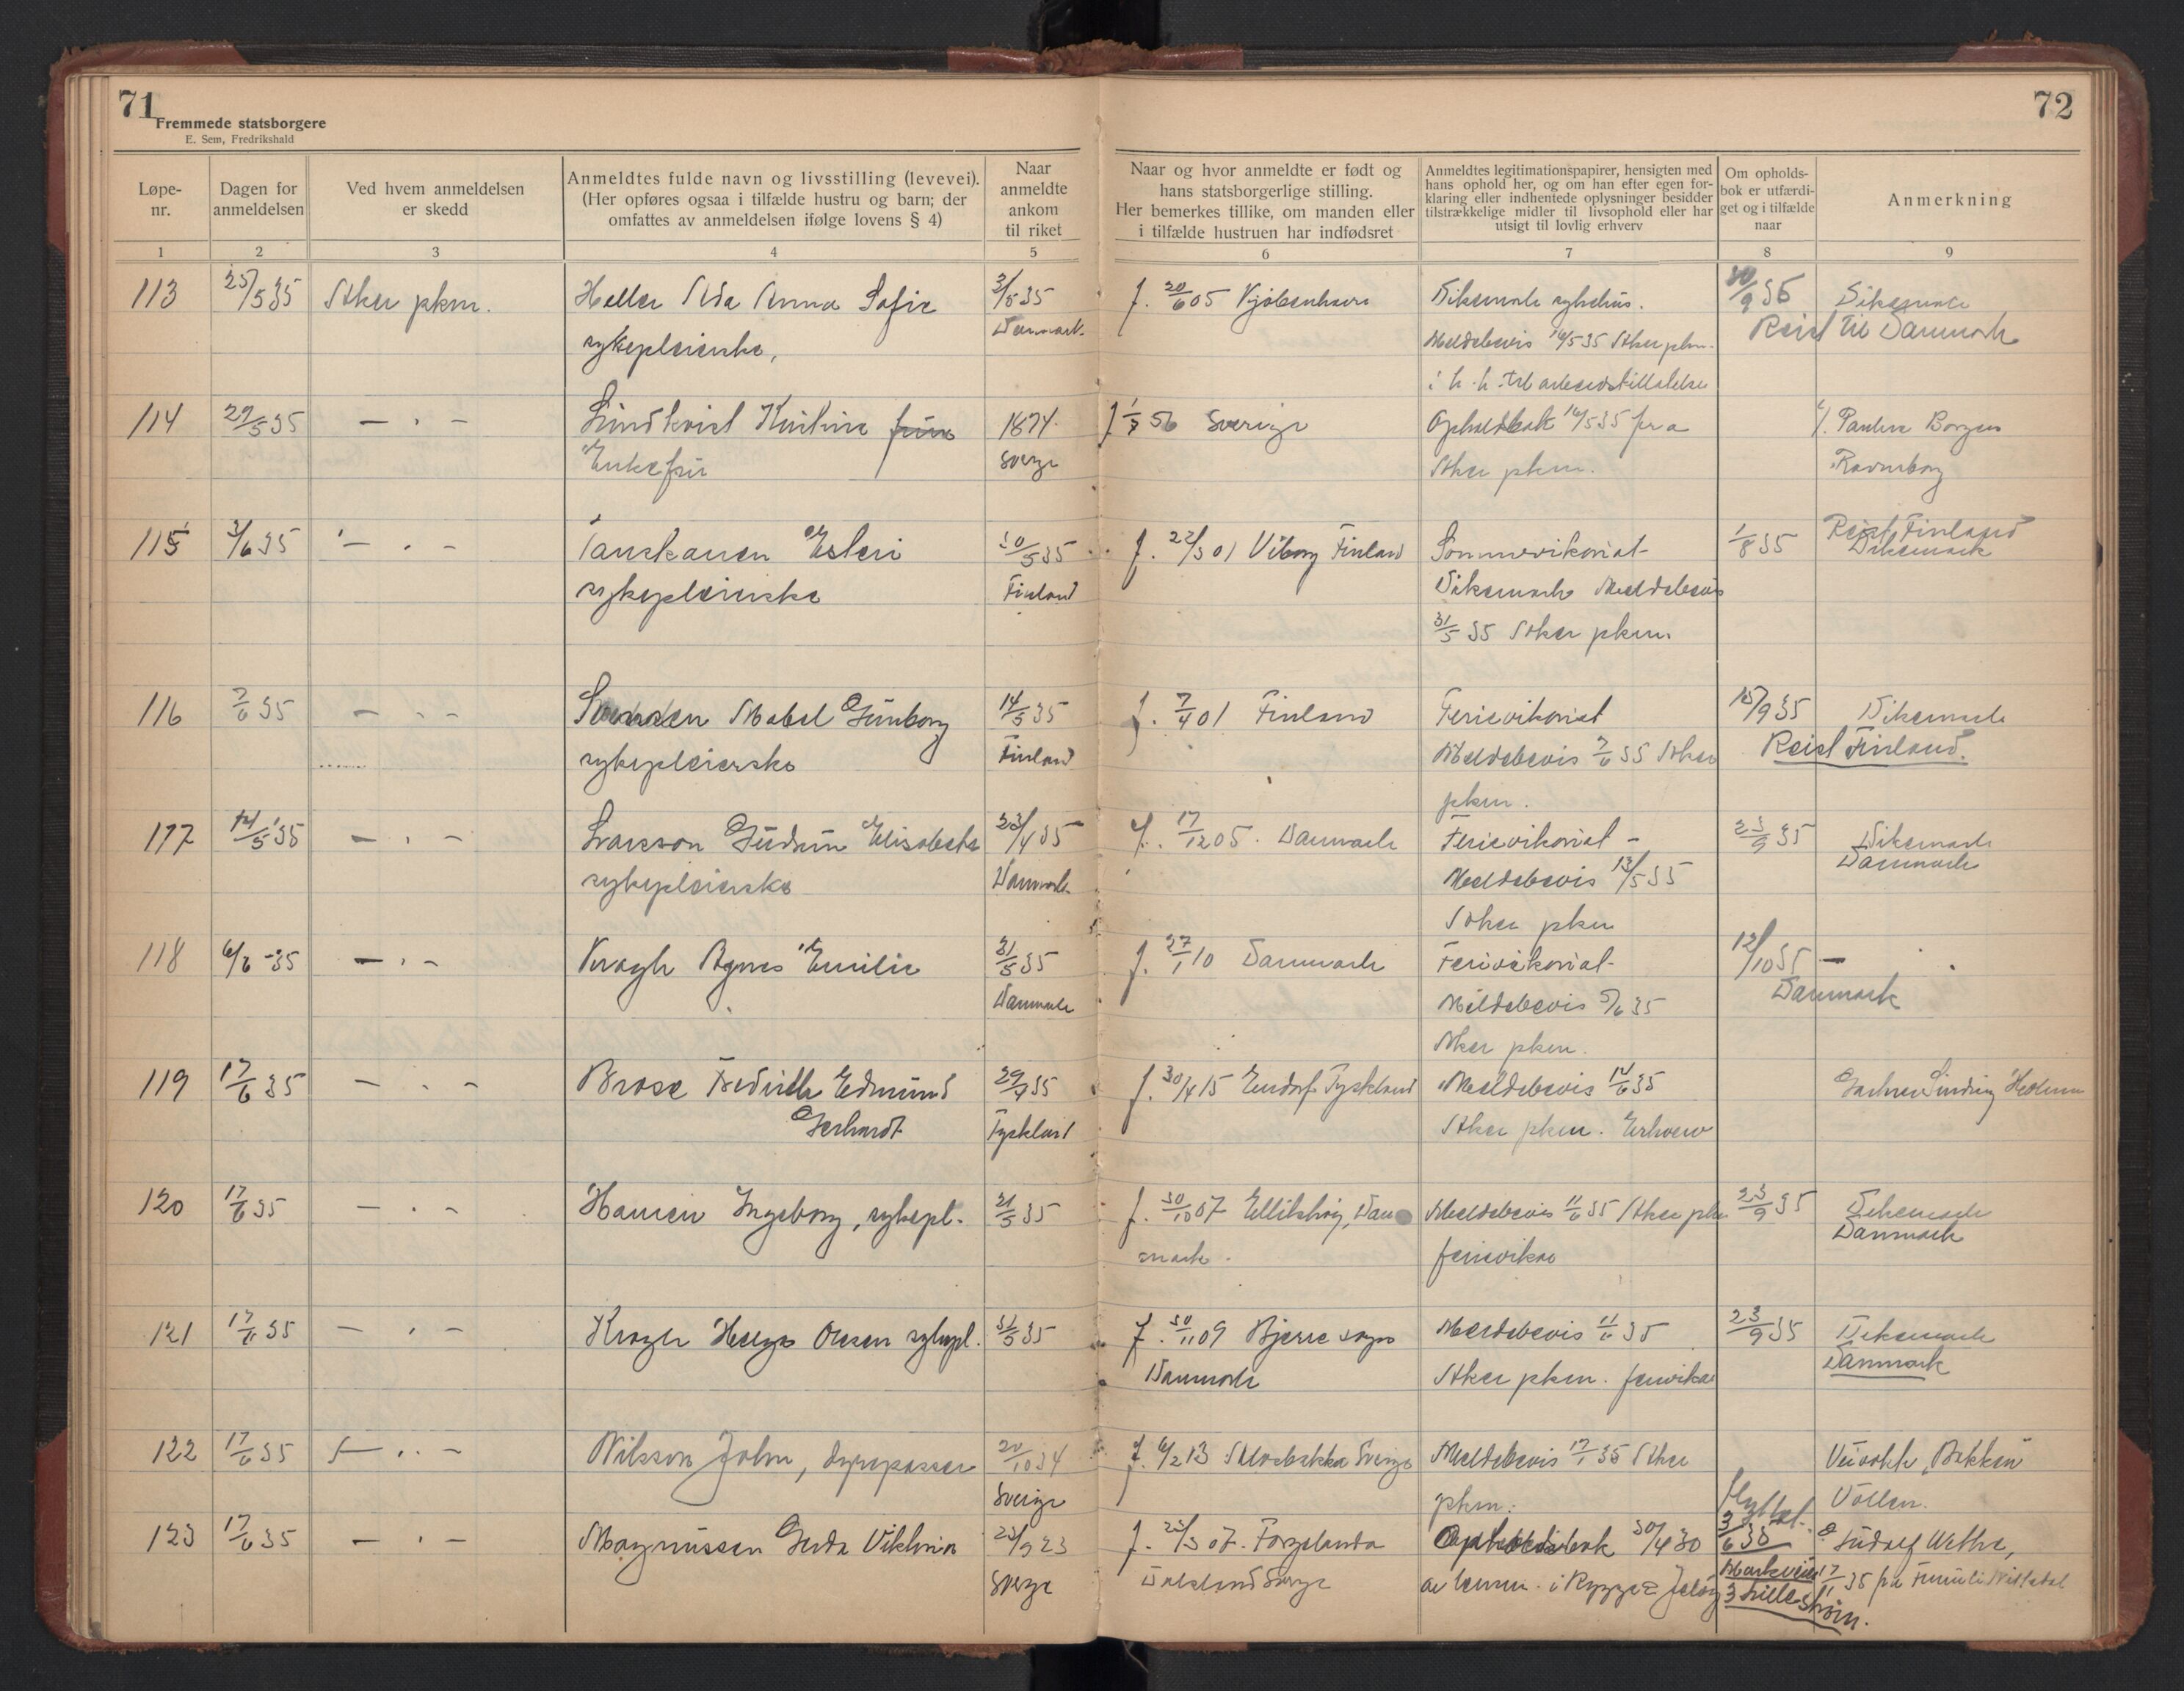 71
Fremmede statsborgere
E. Sem, Fredrikshald
72
Løpe-
nr.
Dagen for
anmeldelsen
Ved hvem anmeldelsen
er skedd
Anmeldtes fulde navn og livsstilling (levevei).
(Her opføres ogsaa i tilfælde hustru og barn; der
omfattes av anmeldelsen ifølge lovens § 4)
Naar
anmeldte
ankom
til riket
Naar og hvor anmeldte er født og
hans statsborgerlige stilling.
Her bemerkes tillike, om manden eller
i tilfælde hustruen har indfødsret
Anmeldtes legitimationspapirer, hensigten med
hans ophold her, og om han efter egen for-
klaring eller indhentede oplysninger besidder
tilstrækkelige midler til livsophold eller har
utsigt til lovlig erhverv
Om opholds-
bok er utfærdi-
get og i tilfælde
naar
Anmerkning
1 2 3 4 5 6 7 8 9
113 25/5 35 Aker pkm. Heller Ada Anna Sofie
sykepleierske,
3/5 35
Danmark.
f. 20/6 05 Kjøbenhavn
Dikemark sykehus.
Meldebevis 16/5 35 Aker pkm.
i h. h. til arbeidstillatelse
30/9 36 Dikemark
Reist til Danmark
114 29/5 35 — " — Lindkvist Kristine frue
Enkefru
1874
Sverge
f 1/7 56 Sverige
Opholdsbok 16/5 35 fra
Aker pkm.
Paulus Borgen
Ravnsborg
115 3/6 35 — " — Tanskanen Esteri
sykepleierske
30/5 35
Finland
f. 22/3 01 Viborg Finland
Sommervikariat
Dikemark Meldebevis
31/5 35 Aker pkm.
1/8 35 Reist Finland
Dikemark
116 7/6 35 — " — Svensen Mabel Gunborg
sykepleierske
14/5 35
Finland
f. 7/4 01 Finland
Ferievikariat
Meldebevis 7/6 35 Aker
pkm.
15/9 35 Dikemark
Reist Finland.
117 14/5 35 — " — Larsson Gudrun Elisabeth
sykepleierske
23/4 35
Danmark
f. 17/12 05. Danmark
Ferievikariat –
Meldebevis 13/5 35
Aker pkm
23/9 35 Dikemark
Danmark
118 6/6 -35 — " — Kragh Agnes Emilie
31/5 35
Danmark
f. 27/1 10 Danmark
Ferievikariat-
Meldebevis 5/6 35
Aker pkm.
12/10 35 — "
Danmark
119 17/6 35 — " — Brose Fredrich Edmund
Gerhardt
29/4 35
Tyskland
f. 30/4 15 Tyskland
Meldebevis 14/6 35
Aker pkm. Erhverv
Gartner Sinding
120 17/6 35 — " — Hansen Ingeborg, sykepl.
31/5 35
f. 30/10 07 Ellitshøj, Dan
mark.
Meldebevis 11/6 35 Aker pkm
ferievikar
23/9 35 Dikemark
Danmark
121 17/6 35 — " — Kragh Helga Olesen sykepl.
31/5 35
f. 30/11 09 Bjerre sogn
Danmark
Meldebevis 11/6 35
Aker pkm. ferievikar
23/9 35 Dikemark
Danmark
122 17/6 35 — " — Nilsson John, dyrepasser
20/10 34
Sverige
f. 6/2 13 Sverge
Meldebevis 17/1 35 Aker
pkm.
Bakken
Vollen.
123 17/6 35 — " — Magnussen Gerda Viktoria
23/9 23
Sverge
f. 25/3 07. Färgelanda
Dalsland Sverge
Opholdsbok 30/4 30
av lensm. i Rygge & Jeløy
flyttet.
3/6 38
Markveien
3 Lillestrøm.
Ludolf Wethe,
17/11 35